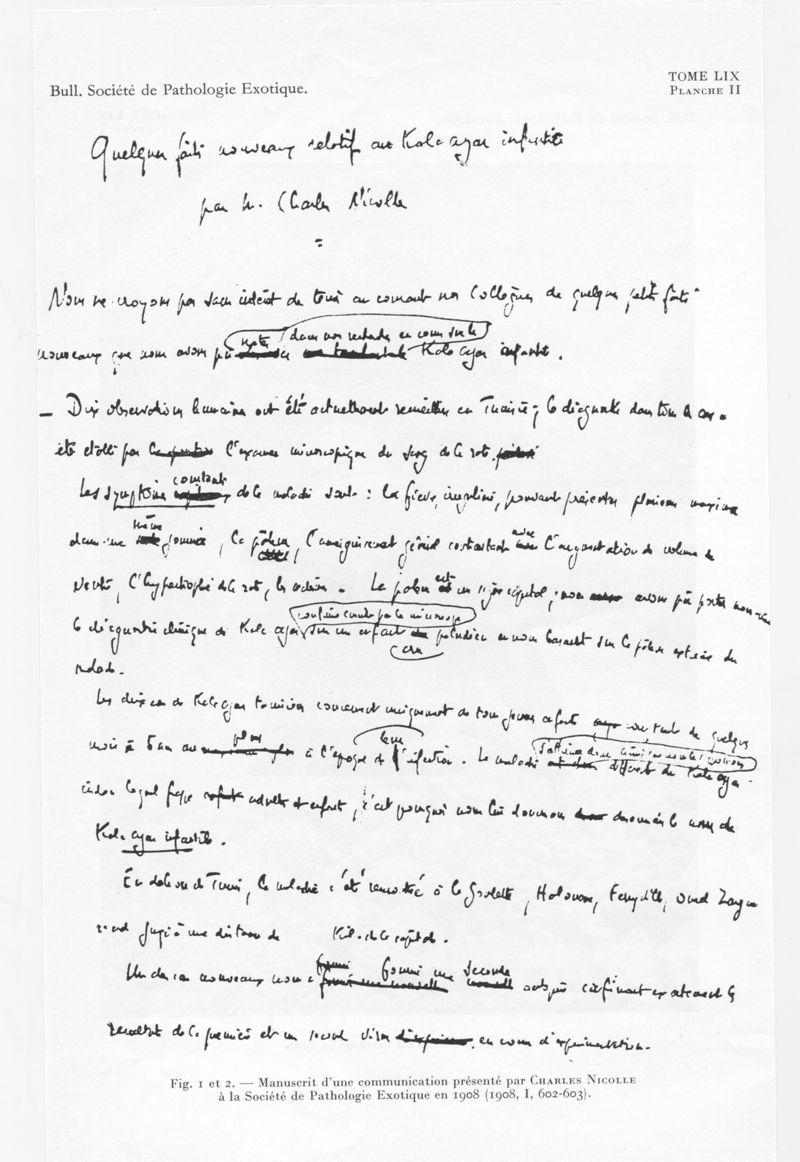 Bull. Société de Pathologie Exotique.
TOME LIX
PLANCHE II
Quelques faits nouveaux relatifs au Kala azar infantile
par M. Charles Nicolle
Nous ne croyons pas sans intérêt de tenir au courant nos Collègues de quelques petits faits
noter dans nos recherches en cours sur le
nouveaux que nous avons pu Kala azar infantile.
– Dix observations humaines ont été actuellement recueillies en Tunisie; le diagnostic dans tous les cas a
été établi par l'examen microscopique du sang de la rate.
constants
Les symptômes de la maladie sont : la fièvre, irrégulière, pouvant présenter plusieurs maxima
même
dans une journée, la pâleur, l'amaigrissement général contrastant avec l'augmentation de volume du
ventre, l'hypertrophie de la rate, les œdèmes. La pâleur est un signe capital; nous avons pu porter
le diagnostic clinique de Kala azar sur un enfant paludéen en nous basant sur la pâleur extrême du
malade.
Les dix cas de Kala azar tunisien concernent uniquement de tous jeunes enfants de quelques
plus
mois à 5 ans au à l'époque de l'infection. La maladie diffère du Kala azar
indien lequel frappe adultes et enfants, c'est pourquoi nous lui donnons désormais le nom de
Kala azar infantile.
En dehors de Tunis, la maladie a été rencontrée à la Goulette, Zaghouan
soit jusqu'à une distance de Kil. de la capitale.
fourni une seconde
Un de ces nouveaux nous a autopsie confirmant exactement les
résultats de la première et un second virus en cours d'expérimentation.
Fig. 1 et 2. — Manuscrit d'une communication présenté par CHARLES NICOLLE
à la Société de Pathologie Exotique en 1908 (1908, I, 602-603).